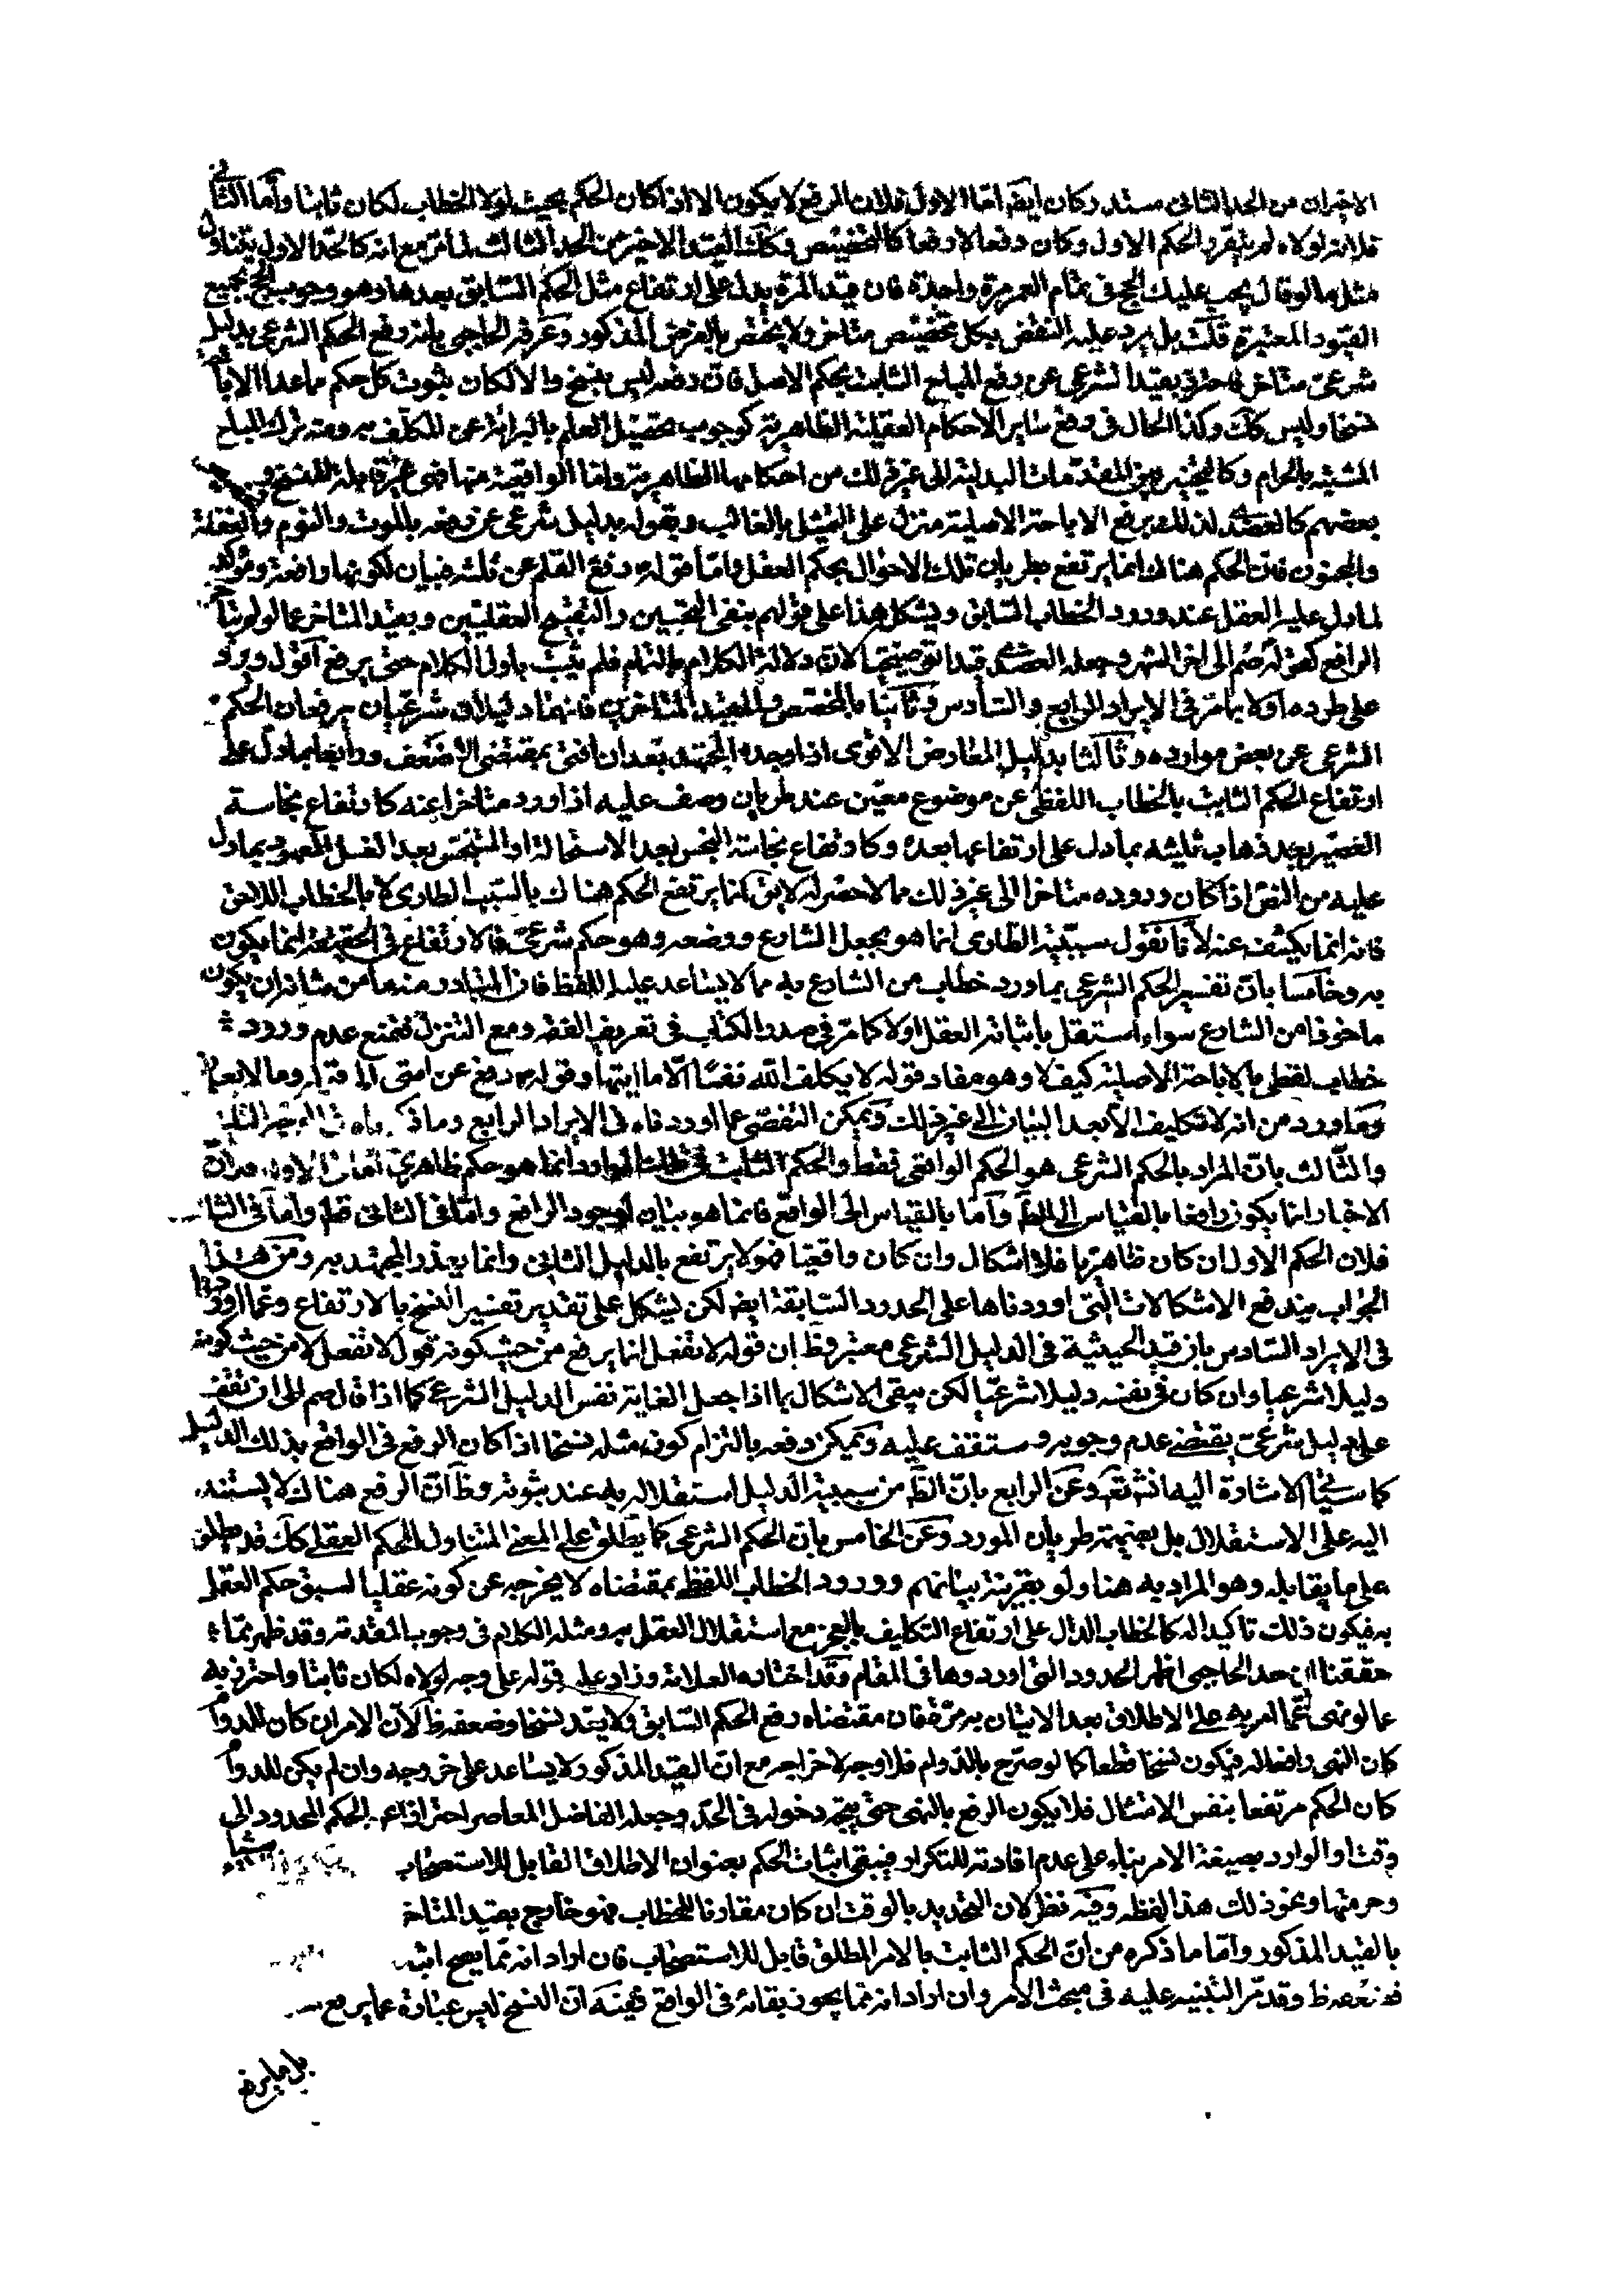 الاخيران من الحد الثانى مستدركان ايضا اما الاول فلان الرفع لا يكون الا اذا كان الحكم بحيث لولا الخطاب لكان ثابتا واما الثانى
فلانه لولاه لم يتقرر الحكم الاول وكان دفعا لا رفعا كالتخصيص وكك القيد الاخير من الحد الثالث لما مر مع انه كالحد الاول يتناول
مثل ما لو قال يجب عليك الحج فى تمام العمر مرة واحدة فان قيد المرة يدل على ارتفاع مثل الحكم السابق بعدها وهو وجوب الحج بجميع
القيود المعتبرة قلت بل يرد عليه النقض بكل تخصيص متاخر ولا يختص بالفرض المذكور وعرفه الحاجبى بانه رفع الحكم الشرعى بدليل
شرعى متاخر فاحترز بقيد الشرعى عن رفع المباح الثابت بحكم الاصل فان رفعه ليس بنسخ والا لكان ثبوت كل حكم ما عدا الاباحة
نسخا وليس كك وكذا الحال فى رفع ساير الاحكام العقلية الظاهرية كوجوب تحصيل العلم بالبرائة عن المكلف به ومنه ترك المباح
المشتبه بالحرام وكالتخيير بين المقدمات البدلية الى غير ذلك من احكامها الظاهرية واما الواقعية منها فهى غير قابلة للنسخ
بعضهم كالعضدى لذلك برفع الاباحة الاصلية منزل على التمثيل بالغالب وبقوله بدليل شرعى عن رفعه بالموت والنوم والغفلة
والجنون فان الحكم هناك انما يرتفع بطريان تلك الاحوال بحكم العقل واما قوله ع رفع القلم عن ثلثه فبيان لكونها رافعة ومؤكد
لما دل عليه العقل عند ورود الخطاب السابق ويشكل هذا على قولهم بنفى التحسين والتقبيح العقليين وبقيد المتاخر عما لو لم يتاخر
الرافع كقوله صم الى اخر الشهر وجعله العضدى قيدا توضيحيا لان دلالة الكلام بالتمام فلم يثبت باول الكلام حتى يرفع اقول ويرد
على طرده اولا بما مر فى الايراد الرابع والسادس وثانيا بالمخصص والمقيد المتاخرين فانهما دليلان شرعيان يرفعان الحكم
الشرعى عن بعض موارده وثالثا بدليل المعارض الاقوى اذا وجده المجتهد بعد ان افتى بمقتضى الاضعف ورابعا بما دل على
ارتفاع الحكم الثابت بالخطاب اللفظى عن موضوع معين عند طريان وصف عليه اذا ورد متاخرا عنه كارتفاع نجاسة
العصير بعد ذهاب ثلثيه بما دل على ارتفاعها بعده وكارتفاع نجاسة النجس بعد الاستحالة او المتنجس بعد الغسل المعهود بما دل
عليه من النص اذا كان وروده متاخرا الى غير ذلك مما لا حصر له لا يق انما يرتفع الحكم هناك بالسبب الطارى لا بالخطاب اللاحق
فانه انما يكشف عنه لانا نقول سببية الطارى انما هو بجعل الشارع ووضعه وهو حكم شرعى فالارتفاع فى الحقيقة انما يكون
به وخامسا بان تفسير الحكم الشرعى بما ورد خطاب من الشارع به مما لا يساعد عليه اللفظ فان المتبادر منه ما من شانه ان يكون
ماخوذا من الشارع سواء استقل باثباته العقل اولا كما مر فى صدر الكتاب فى تعريف الفقه ومع التنزل فنمنع عدم ورود
خطاب لفظى بالاباحة الاصلية كيف لا وهو مفاد قوله لا يكلف الله نفسا الا ما اتيها وقوله ع رفع عن امتى وما لا يعلمون
وما ورد من انه لا تكليف الا بعد البيان الى غير ذلك ويمكن التفصى عما اوردناه فى الايراد الرابع وما ذكر
والثالث بان المراد بالحكم الشرعى هو الحكم الواقعى فقط والحكم الثابت فى تلك الموارد انما هو حكم ظاهرى اما فى الاول فلان
الاخبار انما يكون رافعا بالقياس الى الظ واما بالقياس الى الواقع فانما هو بيان لوجود الرافع واما فى الثانى فظ واما فى الثالث
فلان الحكم الاول ان كان ظاهريا فلا اشكال وان كان واقعيا فهو لا يرتفع بالدليل الثانى وانما يعذر المجتهد به ومن هذا
الجواب يندفع الاشكالات التى اوردناها على الحدود السابقة ايضا لكن يشكل على تقدير تفسير النسخ بالارتفاع وعما اوردنا
فى الايراد السادس بان قيد الحيثية فى الدليل الشرعى معتبر وظ ان قوله لا تفعل انما يرفع من حيث كونه قول لا تفعل لا من حيث كونه
دليلا شرعيا وان كان فى نفسه دليلا شرعيا لكن يبقى الاشكال بما اذا جعل الغاية نفس الدليل الشرعى كما اذا قال صم الى ان تقف
على دليل شرعى يقتضى عدم وجوبه وستقف عليه ويمكن دفعه بالتزام كونه مثله نسخا اذا كان الرفع فى الواقع بذلك الدليل
كما سيجئ الاشارة اليه انش تعـ وعن الرابع بان الظ من سببية الدليل استقلاله به عند ثبوته وظ ان الرفع هناك لا يستند
اليه على الاستقلال بل بضميمة طريان المورد وعن الخامس بان الحكم الشرعى كما يطلق على المعنى المتناول للحكم العقلى كك قد يطلق
على ما يقابله وهو المراد به هنا ولو بقرينة بياناتهم وورود الخطاب اللفظى بمقتضاه لا يخرجه عن كونه عقليا لسبق حكم العقل
به فيكون ذلك تاكيدا له كالخطاب الدال على ارتفاع التكليف بالعجز مع استقلال العقل به ومثله الكلام فى وجوب المقدمة وقد ظهر مما
حققنا ان حد الحاجبى اظهر الحدود التى اوردوها فى المقام وقد اختاره العلامة وزاد عليه قوله على وجه لولاه لكان ثابتا واحترز به
عما لو نهى عما امر به على الاطلاق بعد الاتيان به مرة فان مقتضاه رفع الحكم السابق ولا يعد نسخا وضعفه ظ لان الامر ان كان للدوام
كان النهى رافعا له فيكون نسخا قطعا كما لو صرح بالدوام فلا وجه لاخراجه مع ان القيد المذكور لا يساعد على خروجه وان لم يكن للدوام
كان الحكم مرتفعا بنفس الامتثال فلا يكون الرفع بالنهى حتى يتجه دخوله فى الحد وجعله الفاضل المعاصر احترازا عن الحكم المحدود الى
وقت او الوارد بصيغة الامر بناء على عدم افادته للتكرار فيبقى اثبات الحكم بعنوان الاطلاق القابل للاستصحاب
وحرمتها ونحو ذلك هذا لفظه وفيه نظر لان التحديد بالوقت ان كان مقارنا للخطاب فهو خارج بقيد المتاخر
بالقيد المذكور واما ما ذكره من ان الحكم الثابت بالامر المطلق قابل للاستصحاب فان اراد انه مما يصح
فضعفه ظ وقد مر التنبيه عليه فى مبحث الامر وان اراد انه مما يجوز بقائه فى الواقع ففيه ان النسخ ليس عبارة عما يرفع